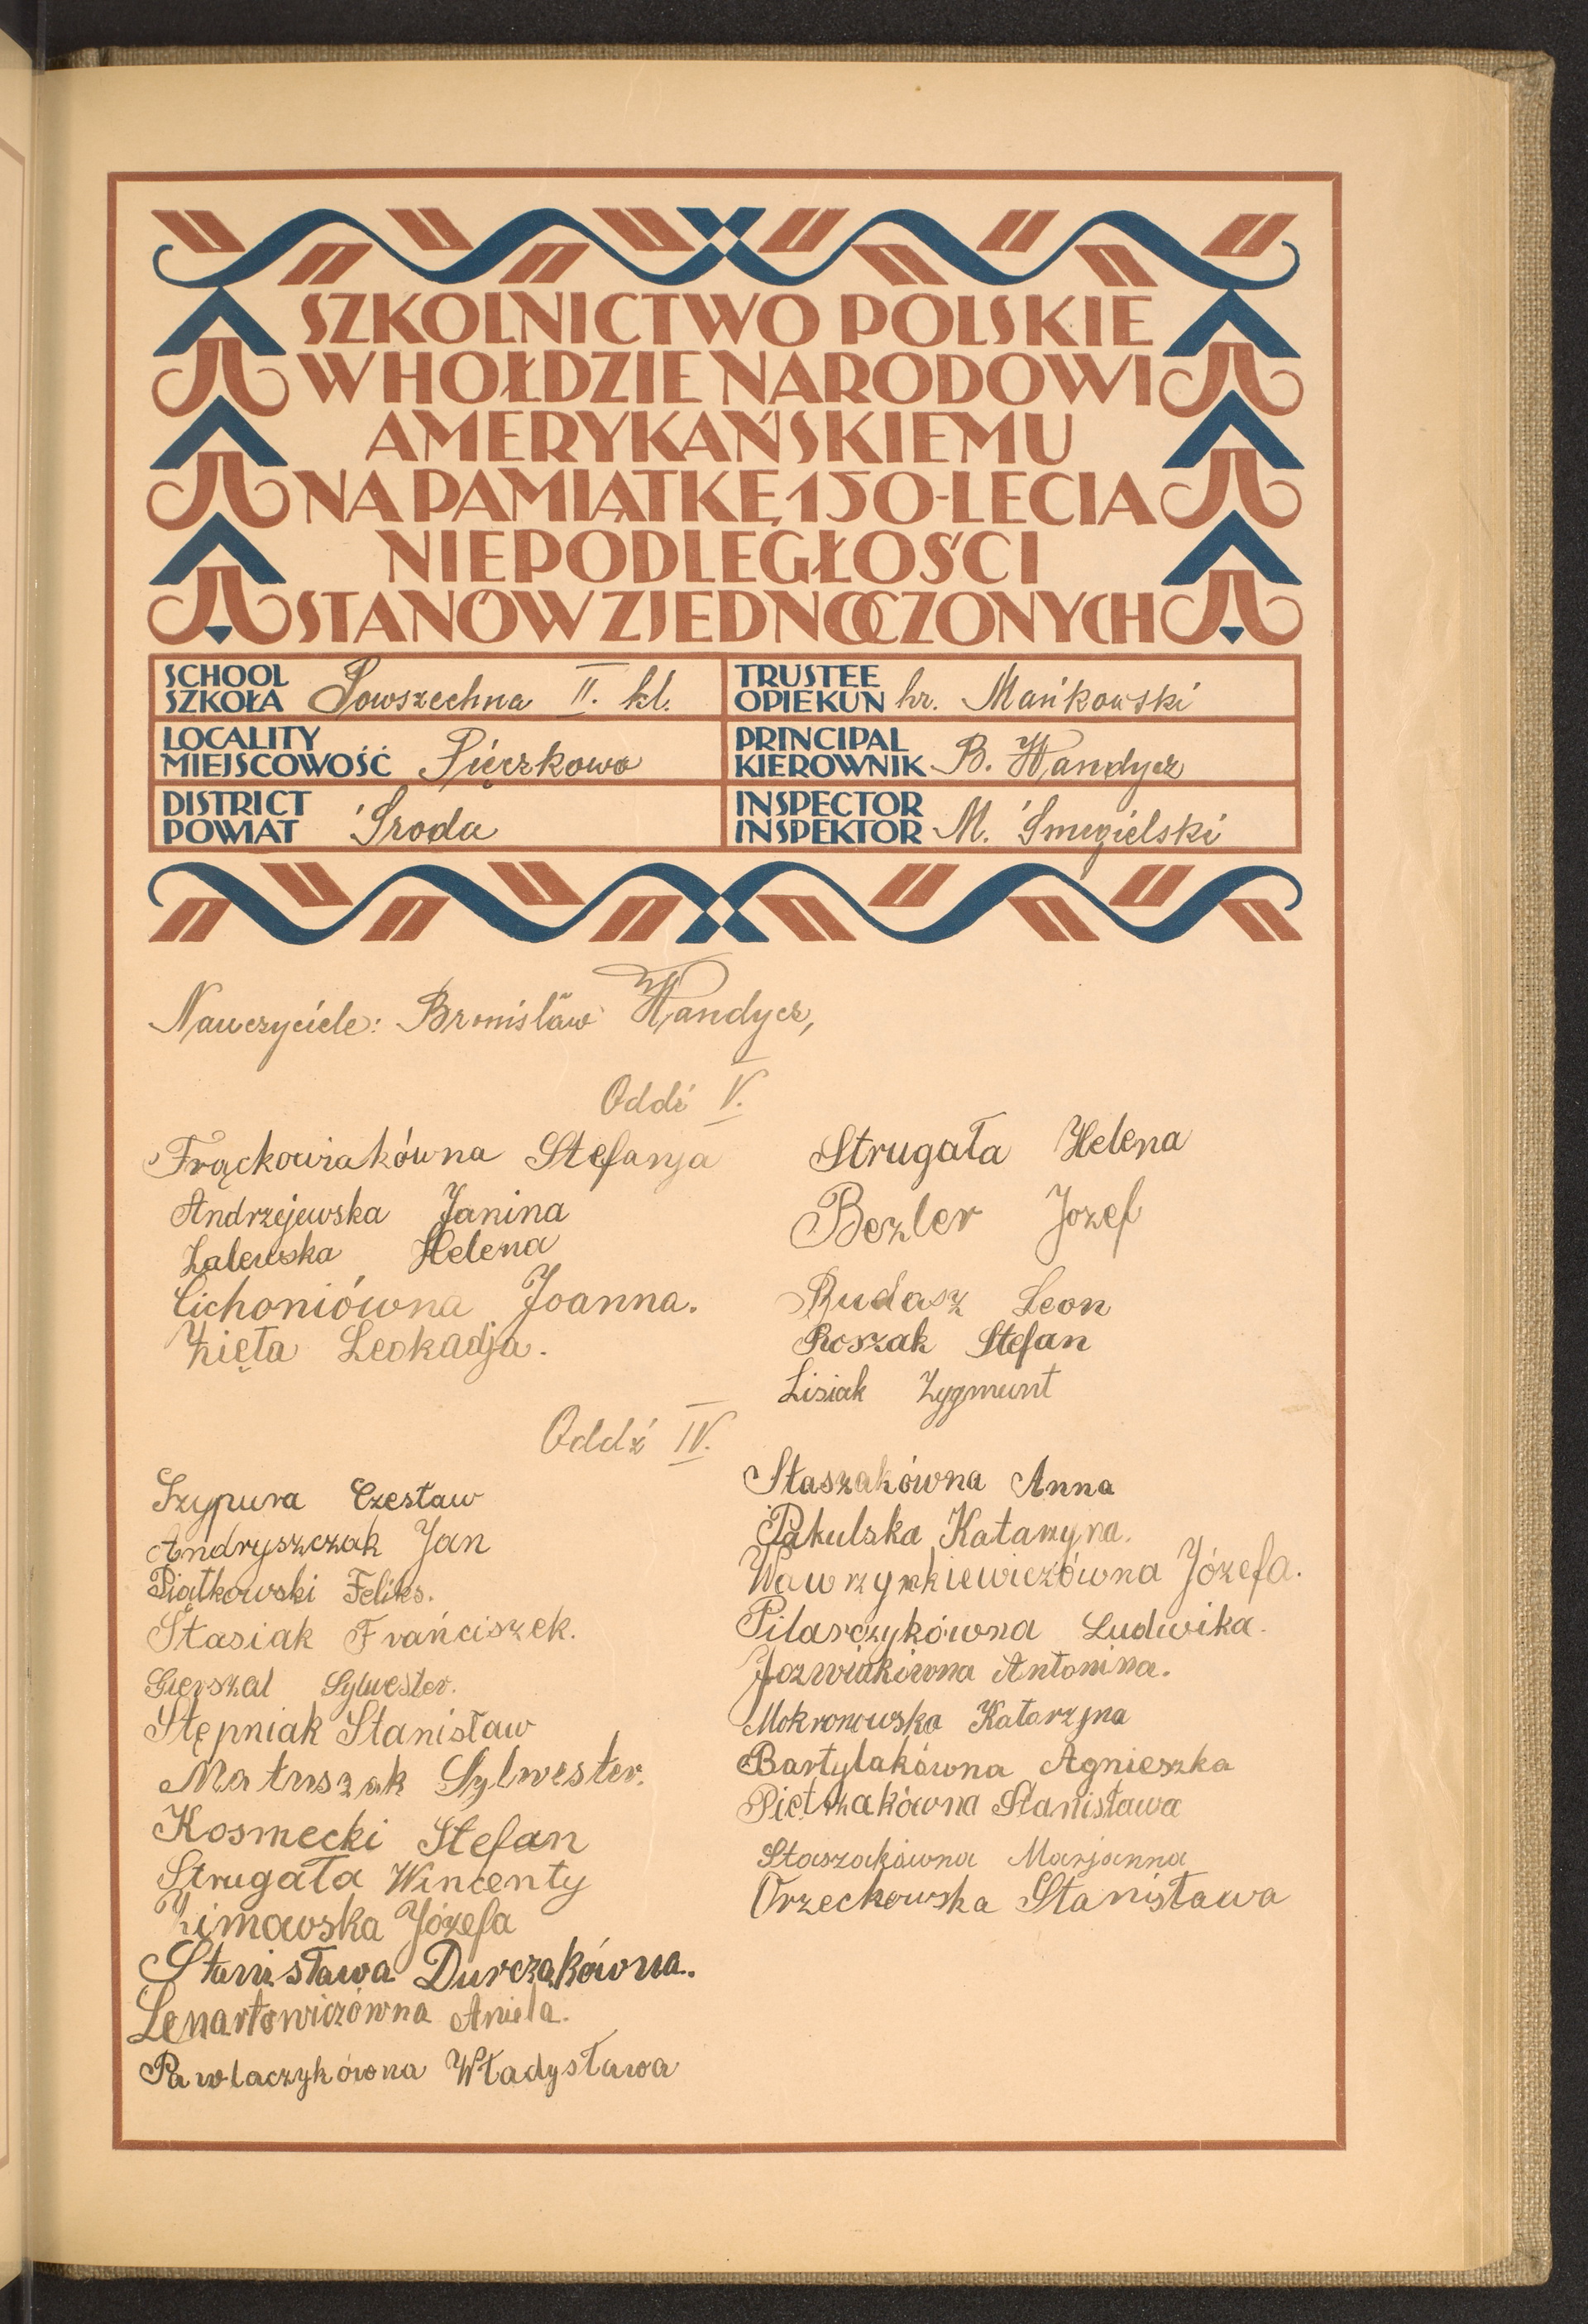 SZKOLNICTWO POLSKIE
W HOŁDZIE NARODOWI
AMERYKAŃSKIEMU
NA PAMIĄTKĘ 150-LECIA
NIEPODLEGŁOŚCI
STANÓW ZJEDNOCZONYCH
SCHOOL
SZKOŁA Powszechna II. kl.
TRUSTEE
OPIEKUN hr. Mańkowski
LOCALITY
MIEJSCOWOŚĆ Pięczkowo
PRINCIPAL
KIEROWNIK B. Handycz
DISTRICT
POWIAT Środa
INSPECTOR
INSPEKTOR M. Śmigielski
Nauczyciele: Bronisław Handycz,
Oddź V.
Frąckowiakówna Stefanja
Andrzejewska Janina
Zalewska Helena
Cichoniówna Joanna.
Zięta Leokadja.
Strugała Helena
Bezler Jozef
Rudasz Leon
Roszak Stefan
Lisiak Zygmunt
Oddź IV.
Szypura Czesław
Andryszczak Jan
Piątkowski Feliks.
Stasiak Frańciszek.
Gierszal Sylwester.
Stępniak Stanisław
Matuszak Sylwester.
Kosmecki Stefan
Strugała Wincenty
Zimowska Józefa
Stanisława Durczakówna.
Lenartowiczówna Aniela.
Pawlaczykówna Władysława
Staszakówna Anna
Pakulska Katarzyna.
Wawrzynkiewiczówna Józefa.
Pilarczykówna Ludwika.
Jozwiakówna Antonina.
Mokronowska Katarzyna
Bartylakówna Agnieszka
Pietrzakówna Stanisława
Staszakówna Marjanna
Orzechowska Stanisława